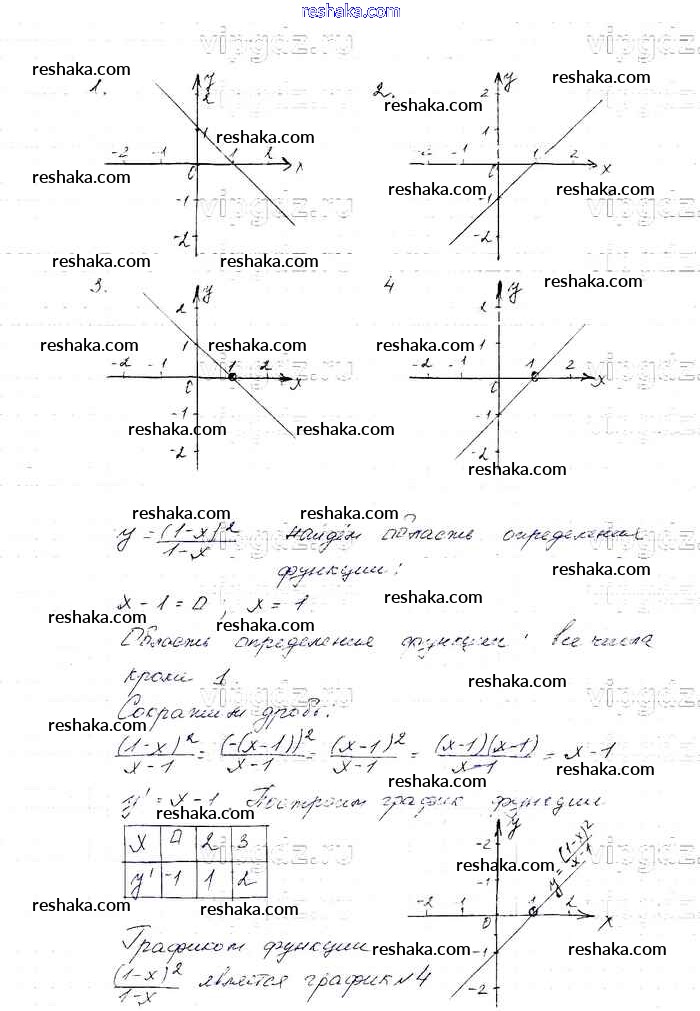 reshaka.com
vipgdz.ru vipgdz.ru
reshaka.com reshaka.com
1. y 2. y
2 reshaka.com 2
1 reshaka.com 1
-2 -1 0 1 2 x -2 -1 0 1 2 x
reshaka.com reshaka.com reshaka.com
-1 vipgdz.ru -1 vipgdz.ru
-2 -2
reshaka.com reshaka.com
3. y 4 y reshaka.com
2 2
reshaka.com 1 reshaka.com reshaka.com 1 reshaka.com
vipgdz.ru vipgdz.ru
-2 -1 0 1 2 x -2 -1 0 1 2 x
-1 -1
reshaka.com reshaka.com
-2 -2
reshaka.com
reshaka.com reshaka.com
y = (1-x)^2/1-x найдём область определения
vipgdz.ru vipgdz.ru
функции: reshaka.com
x-1=0; x=1. reshaka.com
reshaka.com
Область определения функции: все числа
кроме 1. reshaka.com
vipgdz.ru vipgdz.ru
Сократим дробь:
reshaka.com
(1-x)^2/x-1 = (-(x-1))^2/x-1 = (x-1)^2/x-1 = (x-1)(x-1)/x-1 = x-1
y' = x-1. Построим график функции
reshaka.com reshaka.com
x 0 2 3
y' -1 1 2
vipgdz.ru vipgdz.ru
y
-2
-1
y=(1-x)^2/x-1
reshaka.com
-2 -1 0 1 2 x
-1
-2
reshaka.com reshaka.com
Графиком функции reshaka.com reshaka.com
(1-x)^2/1-x является график №4
vipgdz.ru vipgdz.ru
reshaka.com